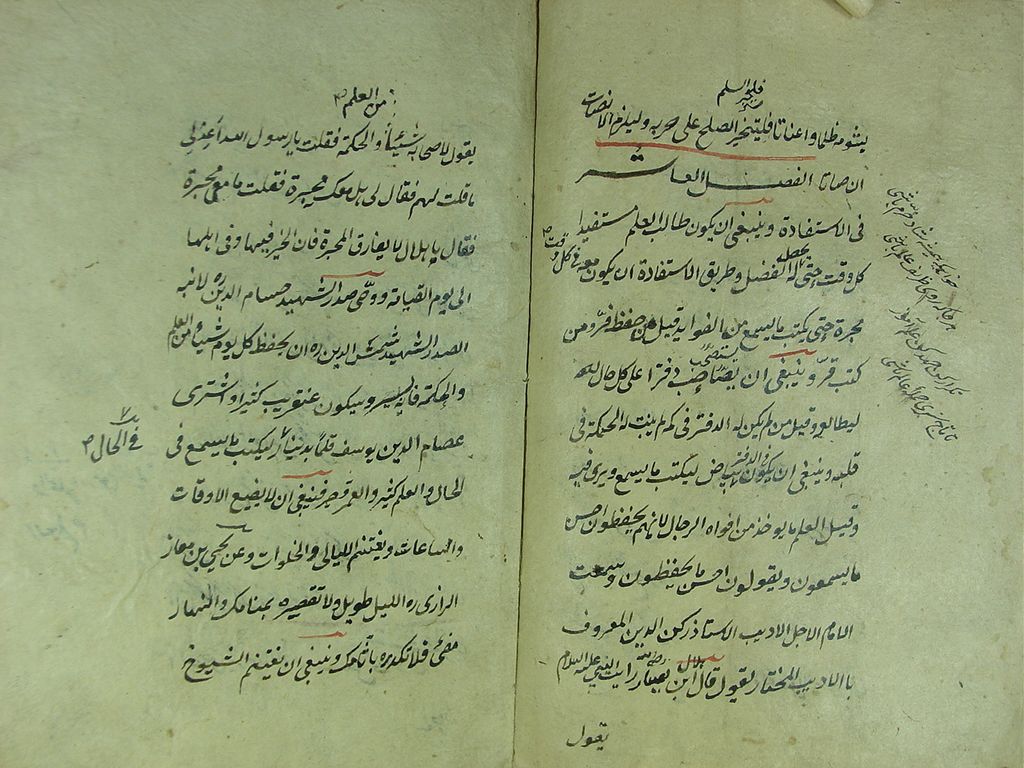 فليتخير السلم
يشومه ظلما و اعناتا فليتخير الصلح على حربه وليلزم الانصات
ان صاتا الفصل العاشر
فى الاستفادة وينبغى ان يكون طالب العلم مستفيدا
كل وقت حتى يحصل له الفضل وطريق الاستفادة ان يكون معه فى كل وقت
محبرة حتى يكتب ما يسمع من الفوايد قيل من حفظ فرّ ومن
كتب قرّ وينبغى ان يستصحب دفترا على كل حال
ليطالع وقيل من لم يكن له الدفتر فى كمه لم يثبت له الحكمة فى
قلبه وينبغى ان يكون فى الدفتر بياض ليكتب ما يسمع ويرى فيه
وقيل العلم ما يوخذ من افواه الرجال لانهم يحفظون احسن
ما يسمعون ويقولون احسن ما يحفظون وسمعت
الامام الاجل الاديب الاستاذ ركن الدين المعروف
با الاديب المختار يقول قال هلال ابن يسار رايت النبى عليه السلام
يقول
من العلم
يقول لاصحابه شيئاً والحكمة فقلت يا رسول الله اعد لى
ما قلت لهم فقال لى هل معك محبرة فقلت ما معى محبرة
فقال يا هلال لا يفارق المحبرة فان الخير فيها وفى اهلها
الى يوم القيامة ووصّى صدر الشهيد حسام الدين ره لابنه
الصدر الشهيد شمس الدين ره ان يحفظ كل يوم شيئا من العلم
والحكمة فانه يسير وسيكون عنقريب كثيرا واشترى
عصام الدين يوسف قلماً بدينار ليكتب ما يسمع فى
فى الحال
الحال والعلم كثير والعمر قصير فينبغى ان لا يضيع الاوقات
والساعات ويغتنم الليالى والخلوات وعن يحيى بن معاز
الرازى ره الليل طويل ولا تقصيره بمنامك والنهار
مضئ فلا تكدره باثامك وينبغى ان يغتنم الشيوخ